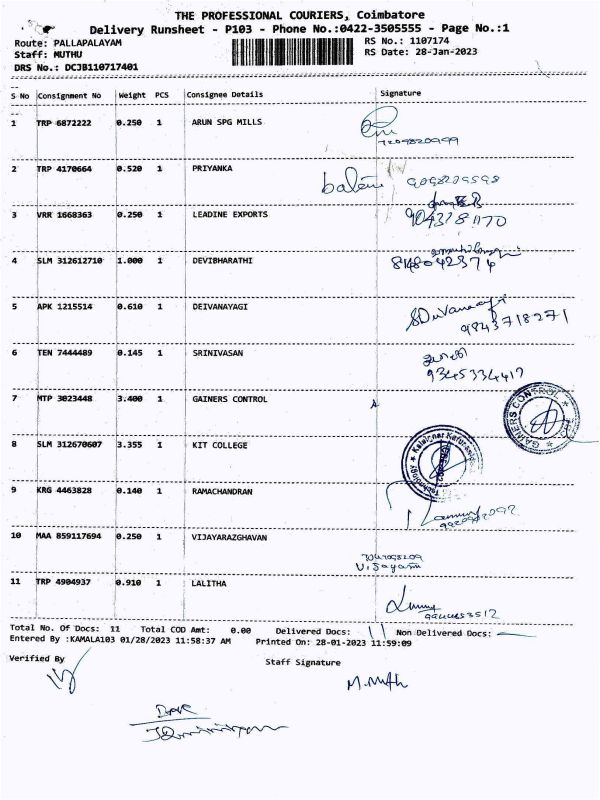 THE PROFESSIONAL COURIERS, Coimbatore
Delivery Runsheet - P103 - Phone No.:0422-3505555 - Page No.:1
Route: PALLAPALAYAM RS No.: 1107174
Staff: MUTHU RS Date: 28-Jan-2023
DRS No.: DCJB110717401
S No Consignment No Weight PCS Consignee Details Signature
1 TRP 6872222 0.250 1 ARUN SPG MILLS
2 TRP 4170664 0.520 1 PRIYANKA
3 VRR 1668363 0.250 1 LEADINE EXPORTS
4 SLM 312612710 1.000 1 DEVIBHARATHI
8148042374
5 APK 1215514 0.610 1 DEIVANAYAGI
9843718271
6 TEN 7444489 0.145 1 SRINIVASAN
9345334417
7 MTP 3023448 3.400 1 GAINERS CONTROL
GAINERS CONTROL
8 SLM 312670607 3.355 1 KIT COLLEGE
Technology
9 KRG 4463828 0.140 1 RAMACHANDRAN
10 MAA 859117694 0.250 1 VIJAYARAZGHAVAN
11 TRP 4904937 0.910 1 LALITHA
Total No. Of Docs: 11 Total COD Amt: 0.00 Delivered Docs: 11 Non Delivered Docs:
Entered By :KAMALA103 01/28/2023 11:58:37 AM Printed On: 28-01-2023 11:59:09
Verified By Staff Signature
M.Muth